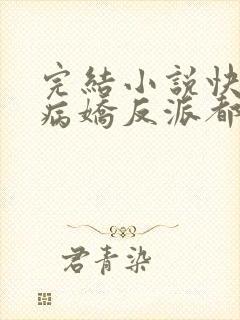 完結小說快
病嬌反派都
君青染